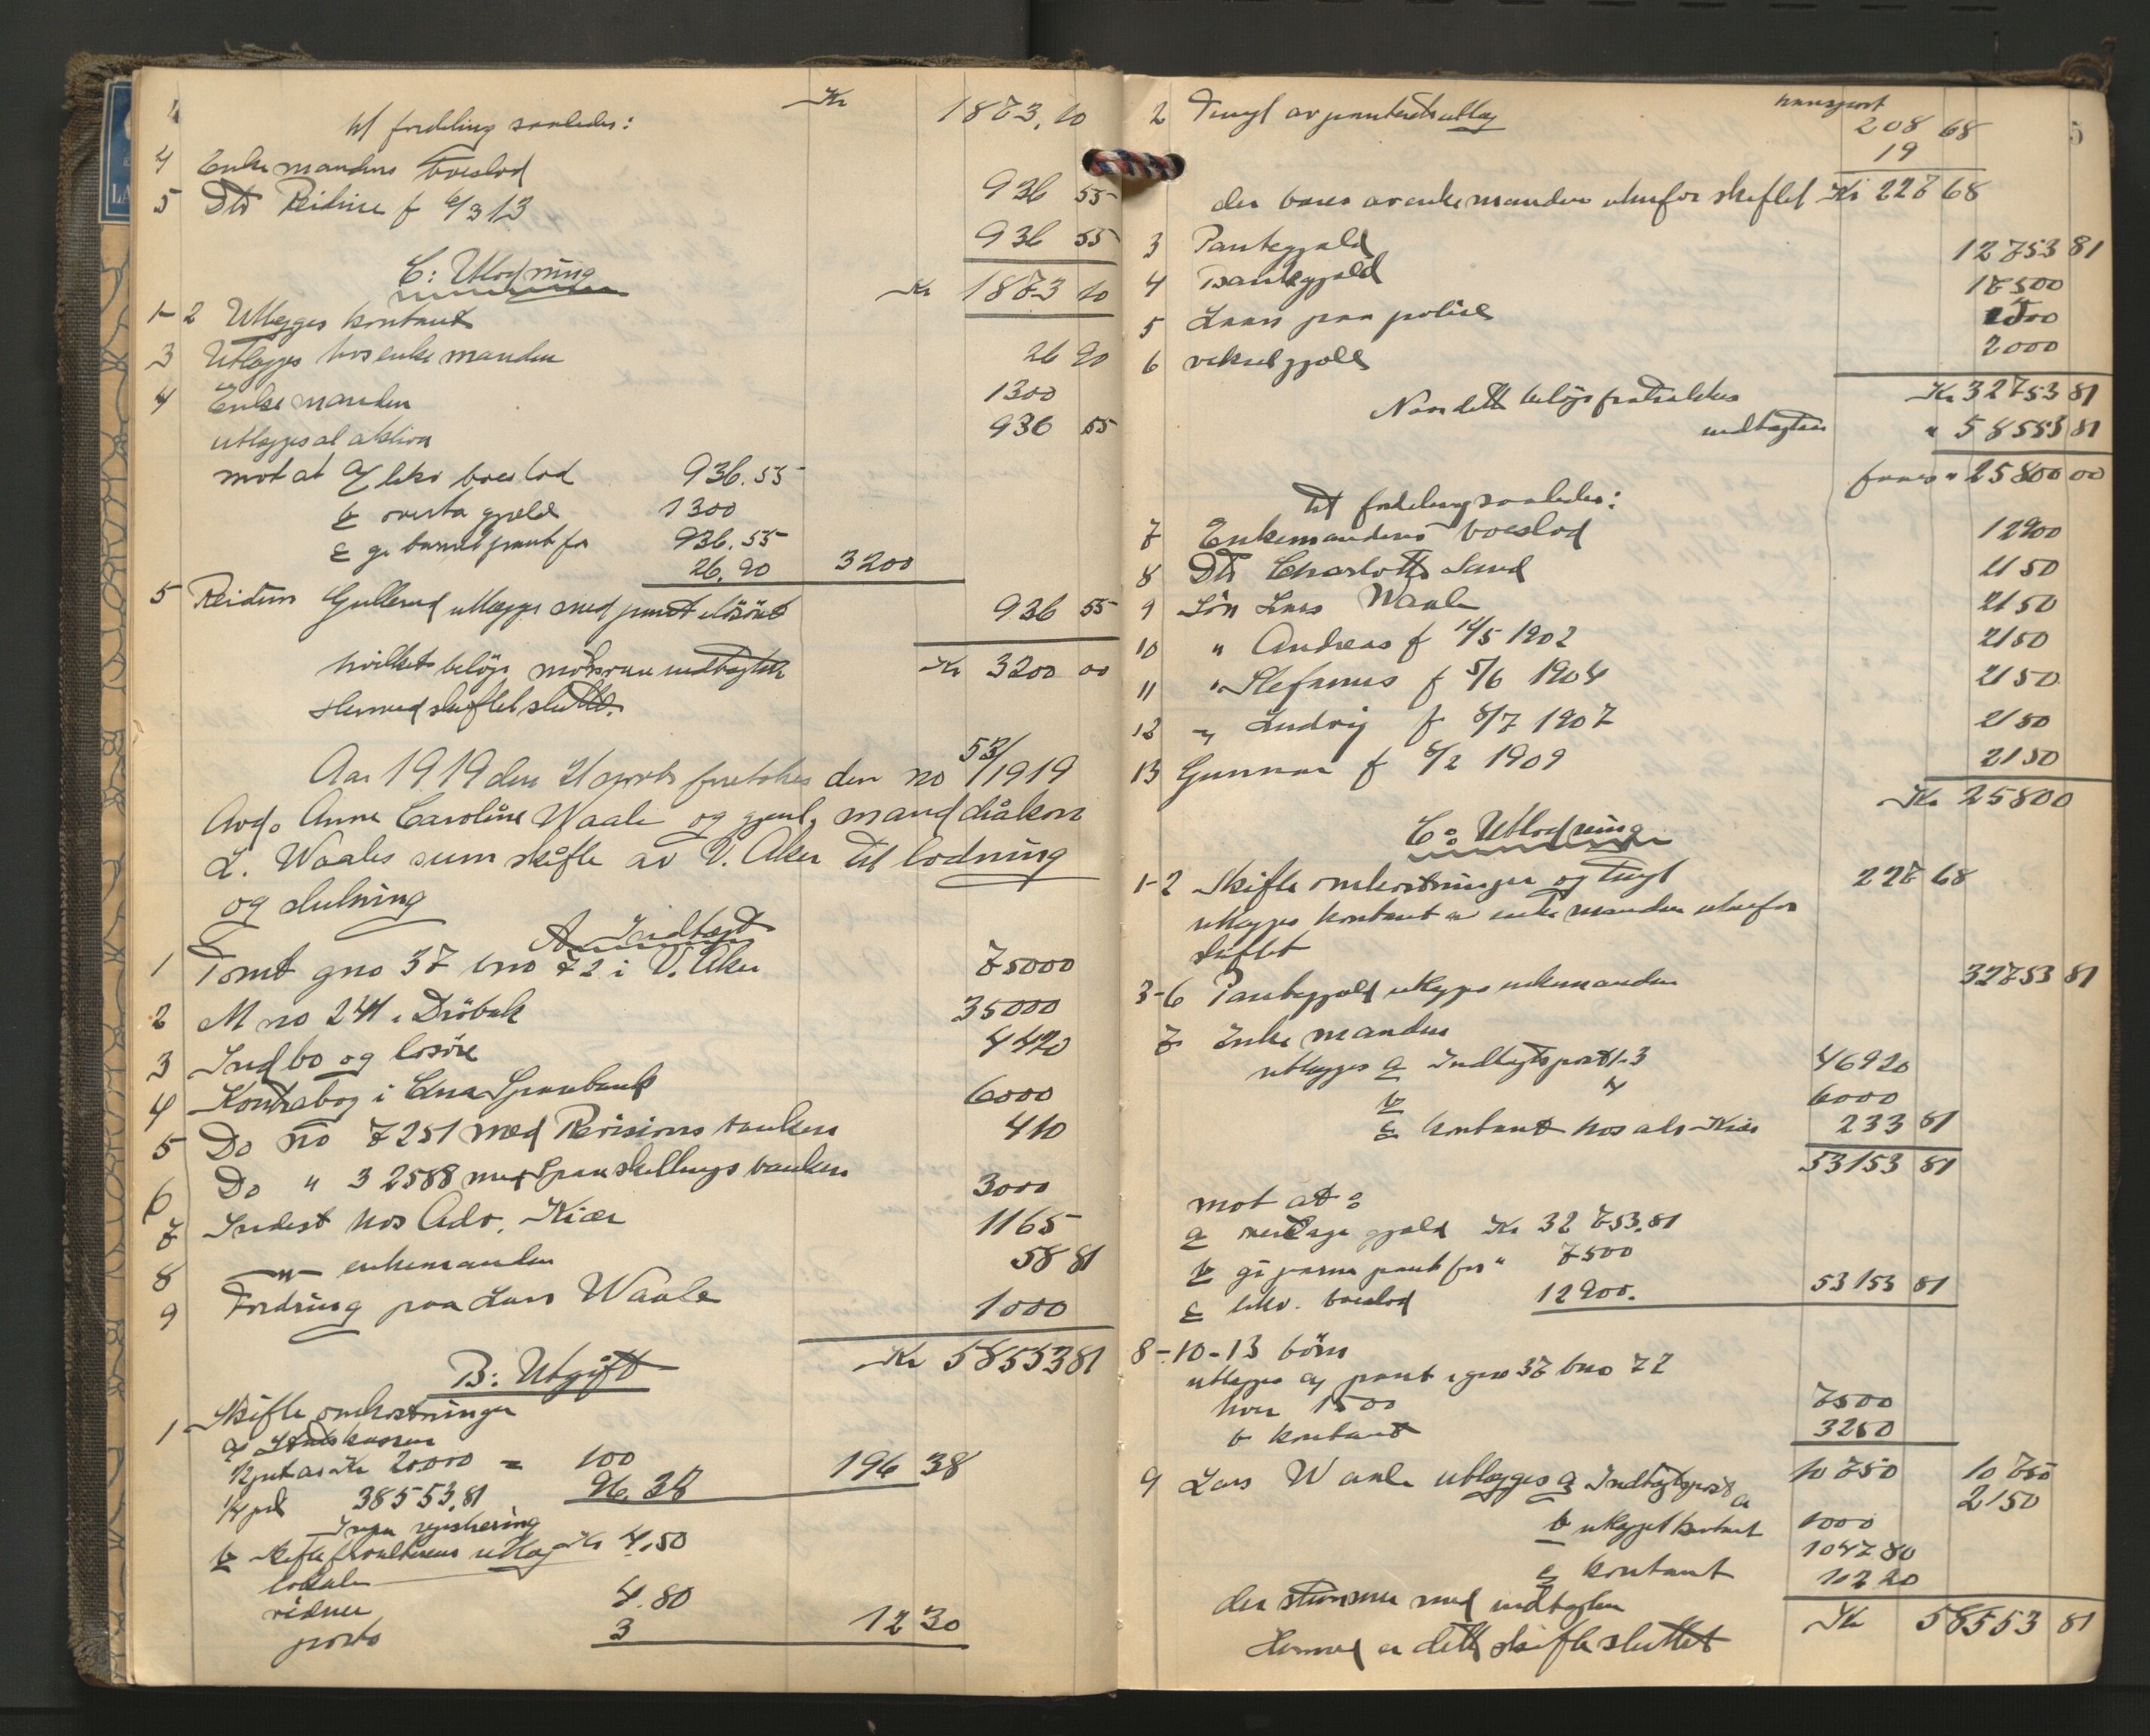 4
Kr
til fordeling saaledes: 1873,10
4 Enkemandens boeslod 936 55
5 Dtr Reidun f 6/3 13 936 55
Kr 1873 10
C: Utlodning
1-2 Utlægges kontant 26 90
3 Utlægges hos enkemanden 1300
4 Enkemanden 936 55
utlægges al aktiva
mot at a/ likv boeslod 936.55
b overta gjeld 1300
c gi barnet pant for 936.55
26.90 3200
5 Reidun Gullerud utlægges med pant i løsöre 936 55
hvilket beløp motsvarer indtægten Kr 3200 00
Hermed skiftet sluttet.
Aar 1919 den 21 foretokes den no 53/1919
Avd. Anne Caroline Waale og gjenl. mand diakon
L. Waales sum skifte av V. Aker til lodning
og slutning
A Indtægt
1 Tomt gno 37 bno 72 i V. Aker 75000
2 M no 241 i Dröbak 35000
3 Indbo og løsöre 4420
4 Kontrabog i Sparebank 6000
5 Do no 7251 med Revisionsbanken 410
6 Do " 32588 med Spareskillingsbanken 3000
7 Indest hos Adv. Kiær 1165
8 —"— enkemanden 58 81
9 Fordring paa Lars Waale 1000
Kr 58553 81
B: Utgift
1 Skifteomkostninger
a/ Statskassen
1/2 pct av Kr 20000 = 100
1/4 pct 38553.81 96.38 196 38
registrering
b utlæg Kr 4.50
lokale
vidner 4.80
porto 3 12 30
5
transport
2 Tingl av panteretsutlæg 208 68
19
der bæres av enkemanden utenfor skiftet Kr 227 68
3 Pantegjæld 12753 81
4 Bankgjæld 17500
5 Laan paa polise 500
6 vekselgjæld 2000
Kr 32753 81
Naar dette beløp fratrækkes
indtægten " 58553 81
faaes " 25800 00
til fordeling saaledes:
7 Enkemandens boeslod 12900
8 Dtr Charlotte Lund 2150
9 Sön Lars Waale 2150
10 " Andreas f 14/5 1902 2150
11 " Stefanus f 5/6 1904 2150
12 " Ludvig f 8/7 1907 2150
13 Gunnar f 8/2 1909 2150
Kr 25800
C: Utlodning
1-2 Skifteomkostninger og tingl 227 68
utlægges kontant av enkemanden utenfor
skiftet
3-6 Pantegjæld utlægges enkemanden 32753 81
7 Enkemanden
utlægges a Indtægtspost 1-3 46920
b " 4 6000
c kontant hos adv Kiær 233 81
53153 81
mot at:
a overtage gjæld Kr 32753.81
b gi barna pant for " 7500
c likv. boeslod 12900. 53153 81
8-10-13 börn
utlægges a/ pant i gno 37 bno 72
hver 1500 7500
b kontant 3250
10750 10750
9 Lars Waale utlægges a Indtægtspost 9 2150
1000
b utlægget kontant 1047 80
c kontant 102 20
der stemmer med indtægten Kr 58553 81
Hermed er dette skifte sluttet